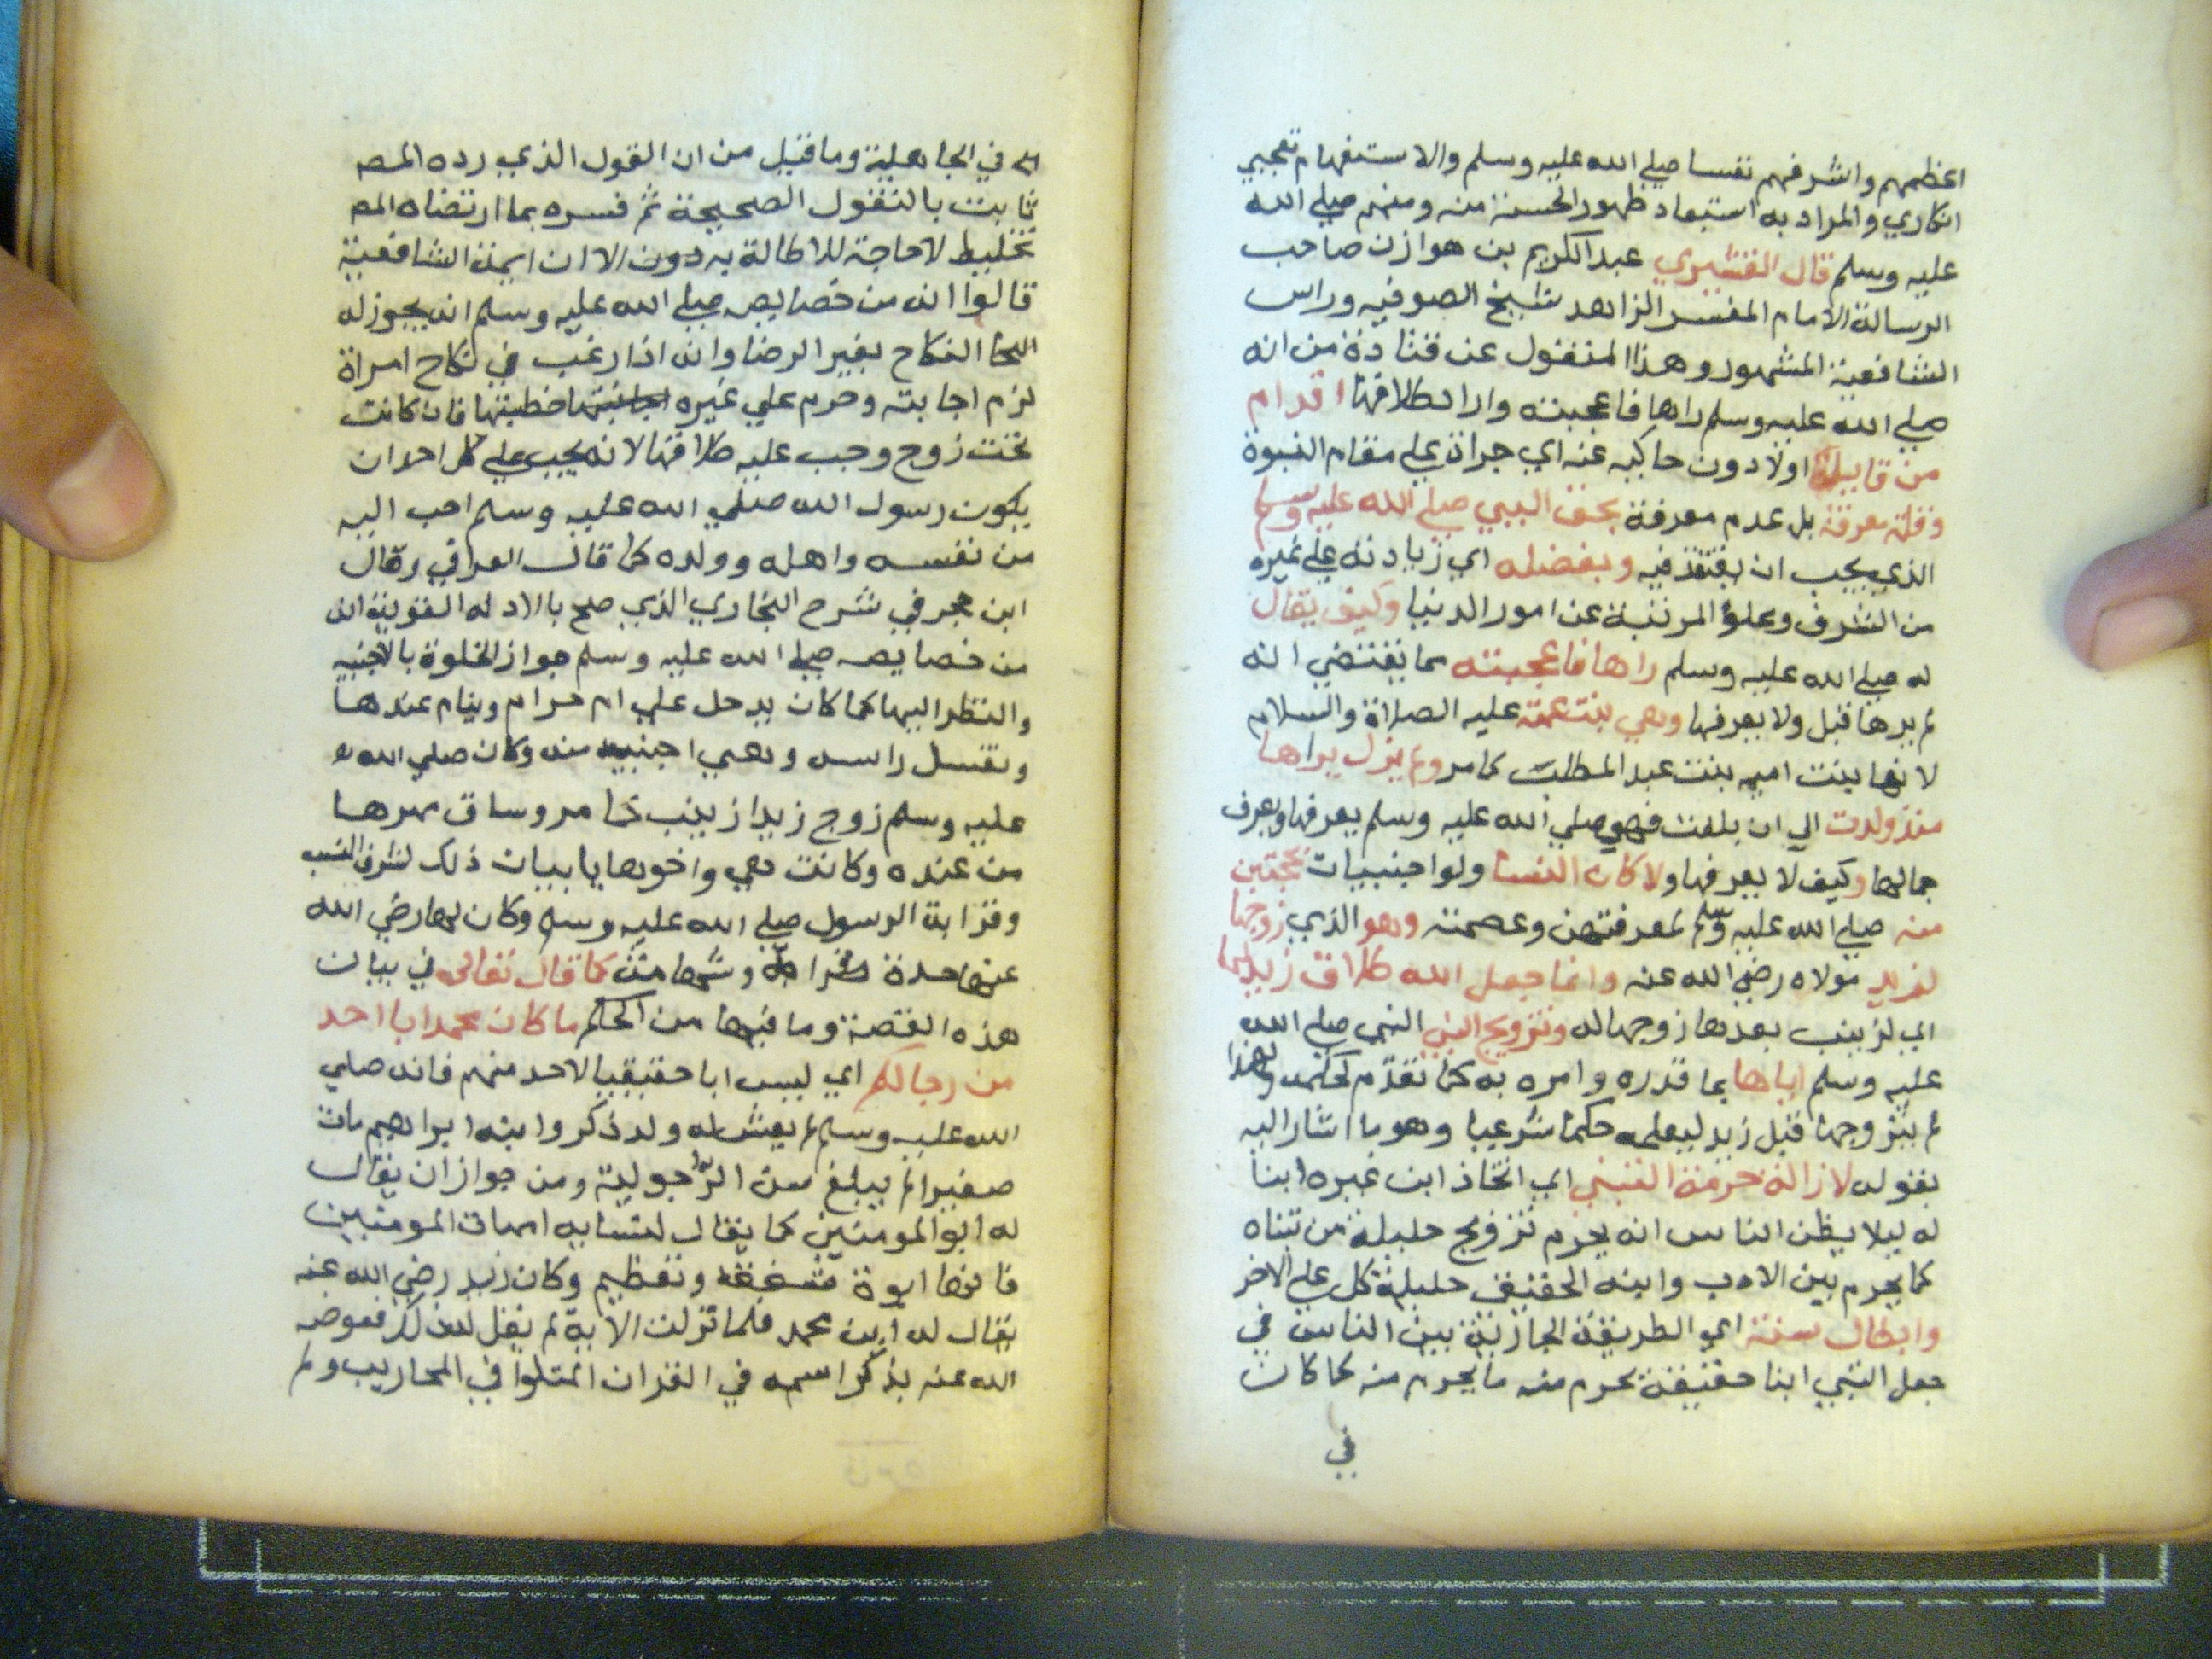 اعظمهم واشرفهم نفسا صلي الله عليه وسلم والاستفهام تعجبي
انكاري والمراد به استبعاد ظهور الحسنة منه ومنهم صلي الله
عليه وسلم قال القشيري عبد الكريم بن هوازن صاحب
الرسالة الامام المفسر الزاهد شيخ الصوفيه وراس
الشافعية المشهور وهذا المنقول عن قتادة من انه
صلي الله عليه وسلم راها فاعجبته واراد طلاقها اقدام
من قايله اولا دون حاكيه عنه اي جراة علي مقام النبوة
وقلة معرفة بل عدم معرفة بحق النبي صلي الله عليه وسلم
الذي يجب ان يعتقد فيه وبفضله اي زيادته علي غيره
من الشرف وعلو المرتبة عن امور الدنيا وكيف يقال
له صلي الله عليه وسلم راها فاعجبته مما يقتضي انه
لم يرها قبل ولا يعرفها وهي بنت عمته عليه الصلاة والسلام
لانها بنت اميمه بنت عبد المطلب كما مر ولم يزل يراها
منذ ولدت الي ان بلغت فهو صلي الله عليه وسلم يعرفها ويعرف
جمالها وكيف لا يعرفها ولا كان النسا ولو اجنبيات يحتجبن
منه صلي الله عليه وسلم لمعرفتهن وعصمته وهو الذي زوجها
لزيد مولاه رضي الله عنه وانما جعل الله طلاق زيد لها
اي لزينب بعدها زوجها له وتزويج النبي النبي صلي الله
عليه وسلم اياها بما قدره وامره به كما تقدم لحكمه ولهذا
لم يتزوجها قبل زيد ليعلمه حكما شرعيا وهو ما اشار اليه
بقوله لازالة حرمة التبني اي اتخاذ ابن غيره ابنا
له ليلا يظن الناس انه يحرم تزويج حليلة من تبناه
كما يحرم بين الاب وابنه الحقيقي حليلة كل علي الاخر
وابطال سنة اي الطريقة الجارية بين الناس في
جعل التبني ابنا حقيقة يحرم منه ما يحرم منه كما كان
في
اي في الجاهلية وما قيل من ان القول الذي رده المص
ثابت بالنقول الصحيحة ثم فسره بما ارتضاه المص
تخليط لا حاجة للاطالة به دون الا ان ايمة الشافعية
قالوا ان من خصايصه صلي الله عليه وسلم انه يجوز له
النكاح بغير الرضا وانه اذا رغب في نكاح امراة
لزم اجابته وحرم علي غيره خطبتها فان كانت
تحت زوج وجب عليه طلاقها لانه يجب علي كل احد ان
يكون رسول الله صلي الله عليه وسلم احب اليه
من نفسه واهله وولده كما قال العراقي وقال
ابن حجر في شرح البخاري الذي صح بالادله القوية ان
من خصايصه صلي الله عليه وسلم جواز الخلوة بالاجنبيه
والنظر اليها كما كان يدخل علي ام حرام وينام عندها
وتغسل راسه وهي اجنبيه منه وكان صلي الله
عليه وسلم زوج زيدا زينب كما مر وساق مهرها
من عنده وكانت هي واخوها يابيان ذلك لشرف النسب
وقرابة الرسول صلي الله عليه وسلم وكان لها رضي الله
عنها حدة وشهامة كما قال تعالي في بيان
هذه القصة وما فيها من الحكم ما كان محمد ابا احد
من رجالكم اي ليس ابا حقيقيا لاحد منهم فانه صلي
الله عليه وسلم لم يعش له ولد ذكر وابنه ابراهيم مات
صغيرا لم يبلغ سن الرجولية ومن جواز ان يقال
له ابو المومنين كما يقال لنسايه امهات المومنين
فانها ابوة شفقة وتعظيم وكان زيد رضي الله عنه
يقال له ابن محمد فلما نزلت الاية لم يقل له ذلك فعوضه
الله عنه بذكر اسمه في القران المتلوا في المحاريب ولم